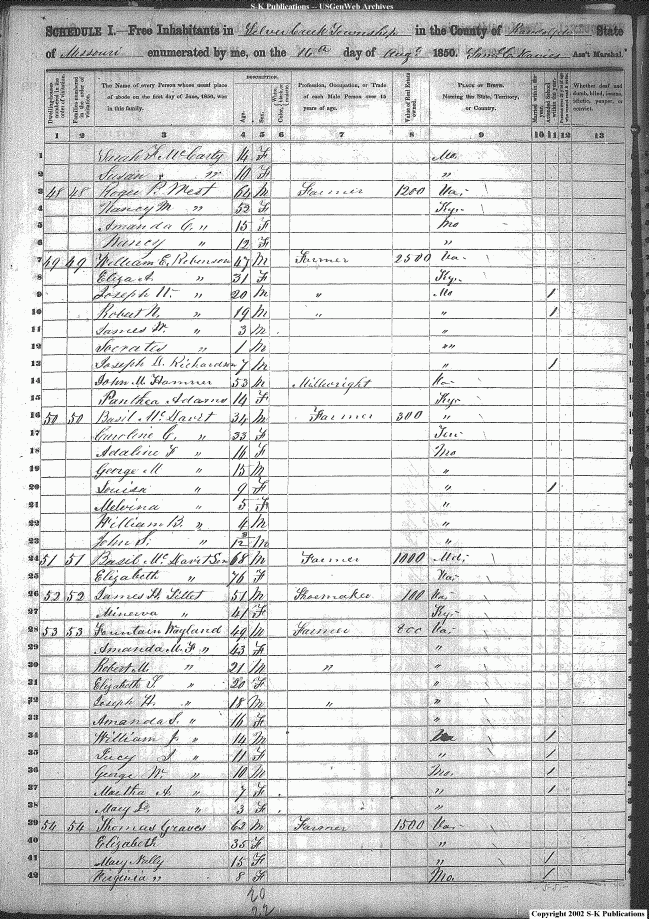 S-K Publications -- USGenWeb Archives
SCHEDULE I.—Free Inhabitants in Silver Creek Township in the County of Randolph State
of Missouri enumerated by me, on the 16th day of Augt 1850. Ass't Marshal.
DESCRIPTION.
The Name of every Person whose usual place of abode on the first day of June, 1850, was in this family.
Age.
Sex.
Profession, Occupation, or Trade of each Male Person over 15 years of age.
Value of Real Estate owned.
PLACE OF BIRTH. Naming the State, Territory, or Country.
Whether deaf and dumb, blind, insane, idiotic, pauper, or convict.
1 2 3 4 5 6 7 8 9 10 11 12 13
1 Sarah F. McCarty 14 F Mo.
2 Susan " 10 F "
3 48 48 P. West 64 M Farmer 1200 Va.
4 Nancy M " 52 F Ky.
5 Amanda C. " 15 F Mo
6 Nancy " 12 F "
7 49 49 William E. Robinson 47 M Farmer 2500 Va.
8 Eliza A. " 31 F Ky.
9 Joseph H. " 20 M " Mo 1
10 Robert N. " 19 M " " 1
11 James W. " 3 M "
12 Socrates " 1 M "
13 Joseph D. Richardson 7 M " 1
14 John M. Hamner 53 M Millwright Va
15 Panthea Adams 14 F Ky
16 50 50 Basil McDavit 34 M Farmer 300 "
17 Caroline C. " 33 F Ten
18 Adaline F " 16 F Mo
19 George M " 13 M "
20 Louisa " 9 F " 1
21 Melvina " 5 F "
22 William B. " 4 M "
23 John S. " M "
24 51 51 Basil McDavit Sen 68 M Farmer 1000 Md.
25 Elizabeth " 76 F Va.
26 52 52 James H. 51 M Shoemaker 100 Va.
27 Minerva " 41 F Ky.
28 53 53 Fountain Wayland 49 M Farmer 800 Va.
29 Amanda M. F " 43 F "
30 Robert M. " 21 M " "
31 Elizabeth S. " 20 F "
32 Joseph H. " 18 M " "
33 Amanda S. " 16 F "
34 William J. " 14 M 1
35 Lucy J. " 11 F " 1
36 George W. " 10 M Mo. 1
37 Martha A. " 7 F " 1
38 Mary " 3 F "
39 54 54 Thomas Graves 62 M Farmer 1500 Va.
40 Elizabeth 35 F "
41 Mary Nally 15 F " 1
42 Virginia " 8 F Mo. 1
20
22
Copyright 2002 S-K Publications